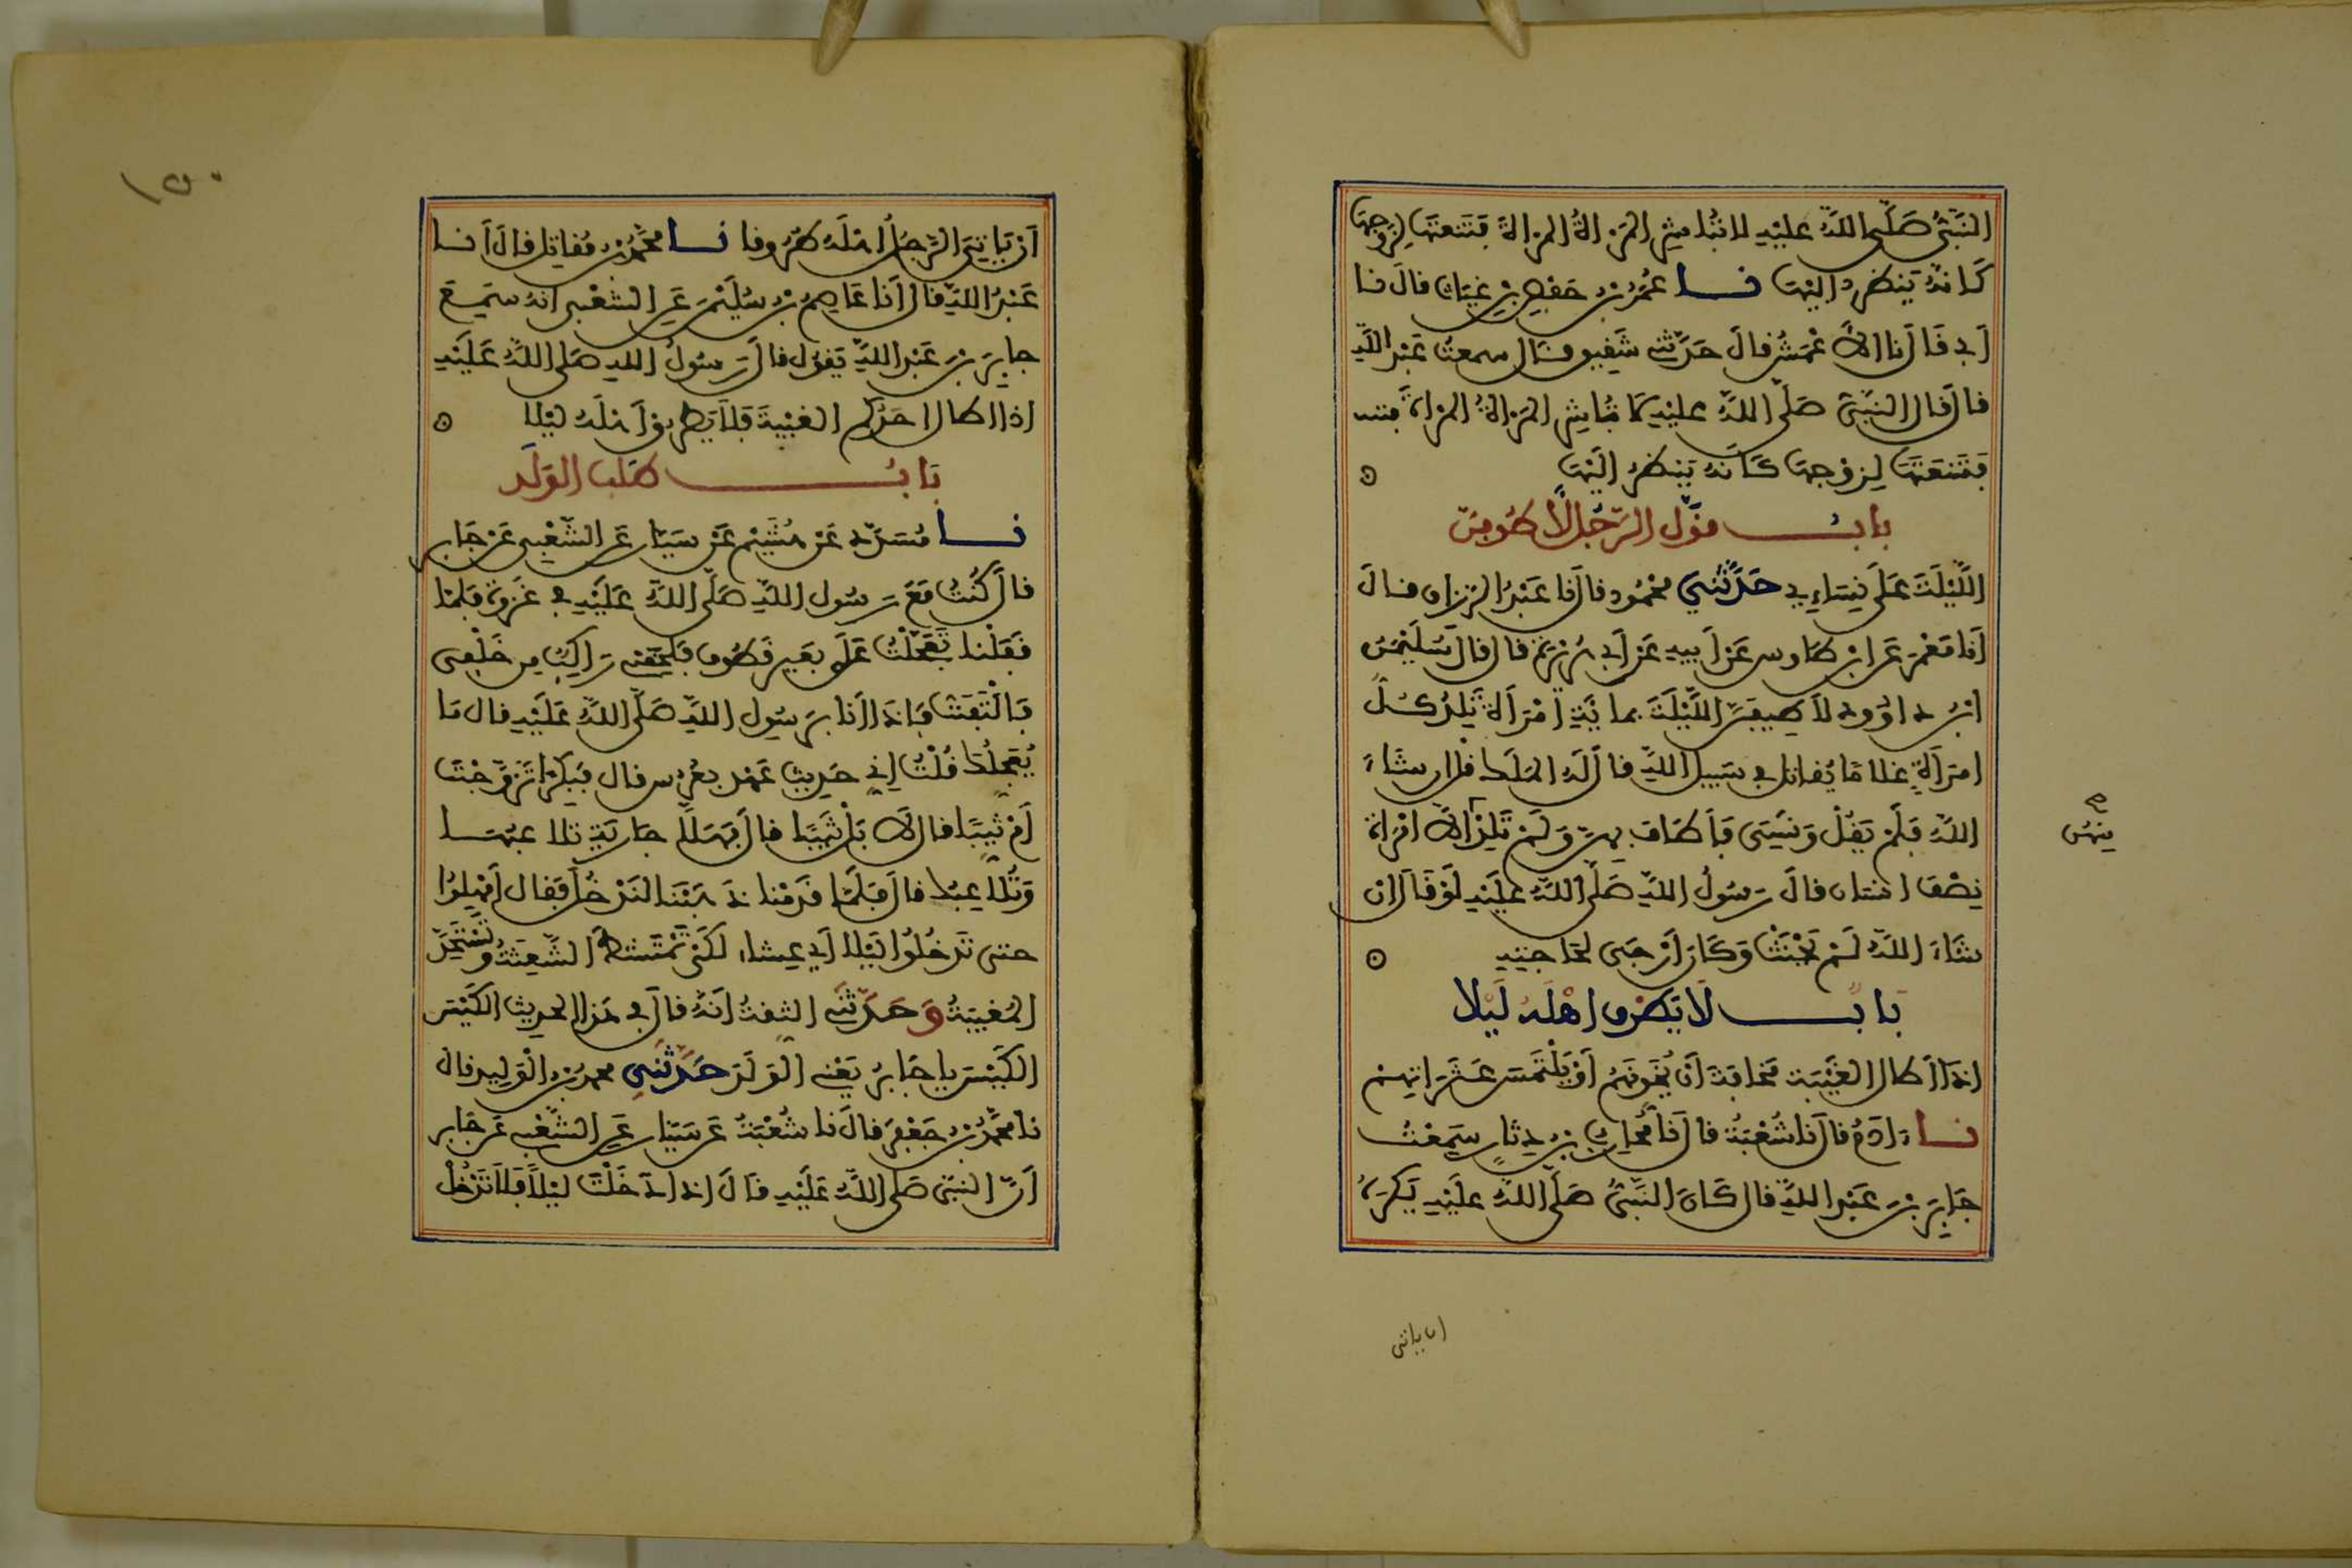 النَّبِيُّ صَلَّى اللهُ عَلَيْهِ لا تُبَاشِرِ المَرْأةُ المَرْأةَ فَتَنْعَتَهَا لِزَوْجِهَا
كَأنَّهُ يَنْظُرُ إليْهَا نا عُمَرُ بْنُ حَفْصِ بْنِ غِيَاثٍ قالَ نا
أبي قَالَ نا الأعْمَشُ قالَ حَدَّثني شَقِيق قال سمعتُ عَبْدَ اللهِ
قالَ قَالَ النَّبِيُّ صَلَّى اللهُ عليْهِ لا تُبَاشِرِ المَرْأةُ المَرْأةَ
فَتَنْعَتَهَا لِزَوْجِهَا كَأنَّهُ يَنْظُرُ إلَيْهَا
بابُ قَوْلِ الرَّجُلِ لأطُوفَنَّ
اللَّيْلَةَ عَلَى نِسَاءِي حَدَّثَنِي مَحْمُود قالَ نا عَبْدُ الرزاق قالَ
أنا مَعْمَر عَن ابن طَاوس عَنْ أبيهِ عَنْ أبي هُرَيْرَةَ قالَ قالَ سُلَيْمَنُ
ابْنُ داوُود لأطِيفَنَّ اللَّيْلَةَ بماِئَةِ امْرَأةٍ تَلِدُ كُلُّ
امرَأةٍ غلامًا يُقاتل في سَبِيل اللهِ قالَ لَهُ المَلَك قل إن شاءَ
اللهُ فَلَمْ يَقُلْ وَنَسِيَ فَأطَافَ بهنَّ وَلَمْ تَلِدْ إلَّا امْرَأة
مِنْهُن
صح
نِصْفَ انسان قالَ رَسُولُ اللهِ صَلَّى اللهُ عليْهِ لَوْ قَالَ إنْ
شَاءَ اللهُ لَمْ يَحْنَثْ وَكَانَ أرْجَى لحَاجَتِهِ
بابُ لَا يَطْرُق اهْلَهُ لَيْلا
إذَا أطَالَ الغَيْبَة مَخَافَةَ أنْ يُخَوِّنَهُمْ أوْ يَلْتَمِسَ عَثَرَاتِهِمْ
نا ءَادَمُ قالَ نا شُعْبَةُ قالَ نا مُحَارِب بْنُ دِثَارٍ سَمِعْتُ
جَابِرَ بْنَ عَبْدِ اللهِ قالَ كَانَ النَّبِيُّ صَلَّى اللهُ عليْهِ يَكْرَهُ
ان ياتي
١٥٠
أنْ يَاتِيَ الرَّجُلُ أهْلَهُ طُرُوقا نا مُحَمَّدُ بْنُ مُقاتِل قالَ أنا
عَبْدُ اللهِ قالَ أنَا عَاصِمُ بْنُ سُلَيْمَنَ عَنِ الشَّعْبِي أنهُ سَمِعَ
جابِرَ بْنَ عَبْدِ اللهِ يَقُول قالَ رَسُولُ اللهِ صَلى اللهُ عَلَيْهِ
إذا أطالَ أحَدُكُم الغَيْبَةَ فَلَا يَطْرُقْ أهْلَهُ لَيْلا
بَابُ طَلَبِ الوَلَدِ
نا مُسَدَّد عَنْ هُشَيْم عَنْ سَيَّار عَنِ الشَّعْبِي عَنْ جَابِر
قالَ كُنْتُ مَعَ رَسُول اللهِ صَلَّى اللهُ عَلَيْهِ في غَزْوَة فَلَمَّا
قَفَلْنا تَعَجَّلْتُ عَلَى بَعِير قَطُوف فَلَحِقَنِي رَاكِبٌ مِن خَلْفِي
فَالْتَفَتُّ فَإذَا أنا برَسُول اللهِ صَلَّى اللهُ عَلَيْهِ قال مَا
يُعْجِلُكَ قُلْتُ إني حَدِيث عَهْد بعُرس قال فَبِكْرًا تَزَوَّجْتَ
أمْ ثَيِّبًا قالَ لَا بَلْ ثَيِّبًا قالَ فَهَلَّا جَاريَة تُلاعِبُهَا
وَتُلاعِبُكَ قالَ فَلَمَّا قَدِمْنا ذَهَبْنَا لنَدْخُلَ فَقَالَ أمْهِلُوا
حتى تَدْخُلُوا لَيْلا أي عِشَاء لكَيْ تَمْتَشِطَ الشَّعِثَةُ وَتَسْتَحِدَّ
المُغِيبَةُ وَحَدَّثَنِي الثِّقَةُ أنَّهُ قالَ في هَذا الحديث الكَيْسَ
الكَيْسَ يا جَابِرُ يَعْنِي الوَلَدَ حَدَّثَنِي محمدُ بْنُ الْوَلِيدِ قالَ
نا مُحَمَّدُ بْنُ جَعْفَرٍ قالَ نا شُعْبَةُ عَن سَيَّار عَنِ الشَّعْبِي عَنْ جَابر
أنَّ النبيَّ صَلى اللهُ عَلَيْهِ قَالَ إذا دَخَلْتَ لَيْلًا فَلا تَدْخُلْ